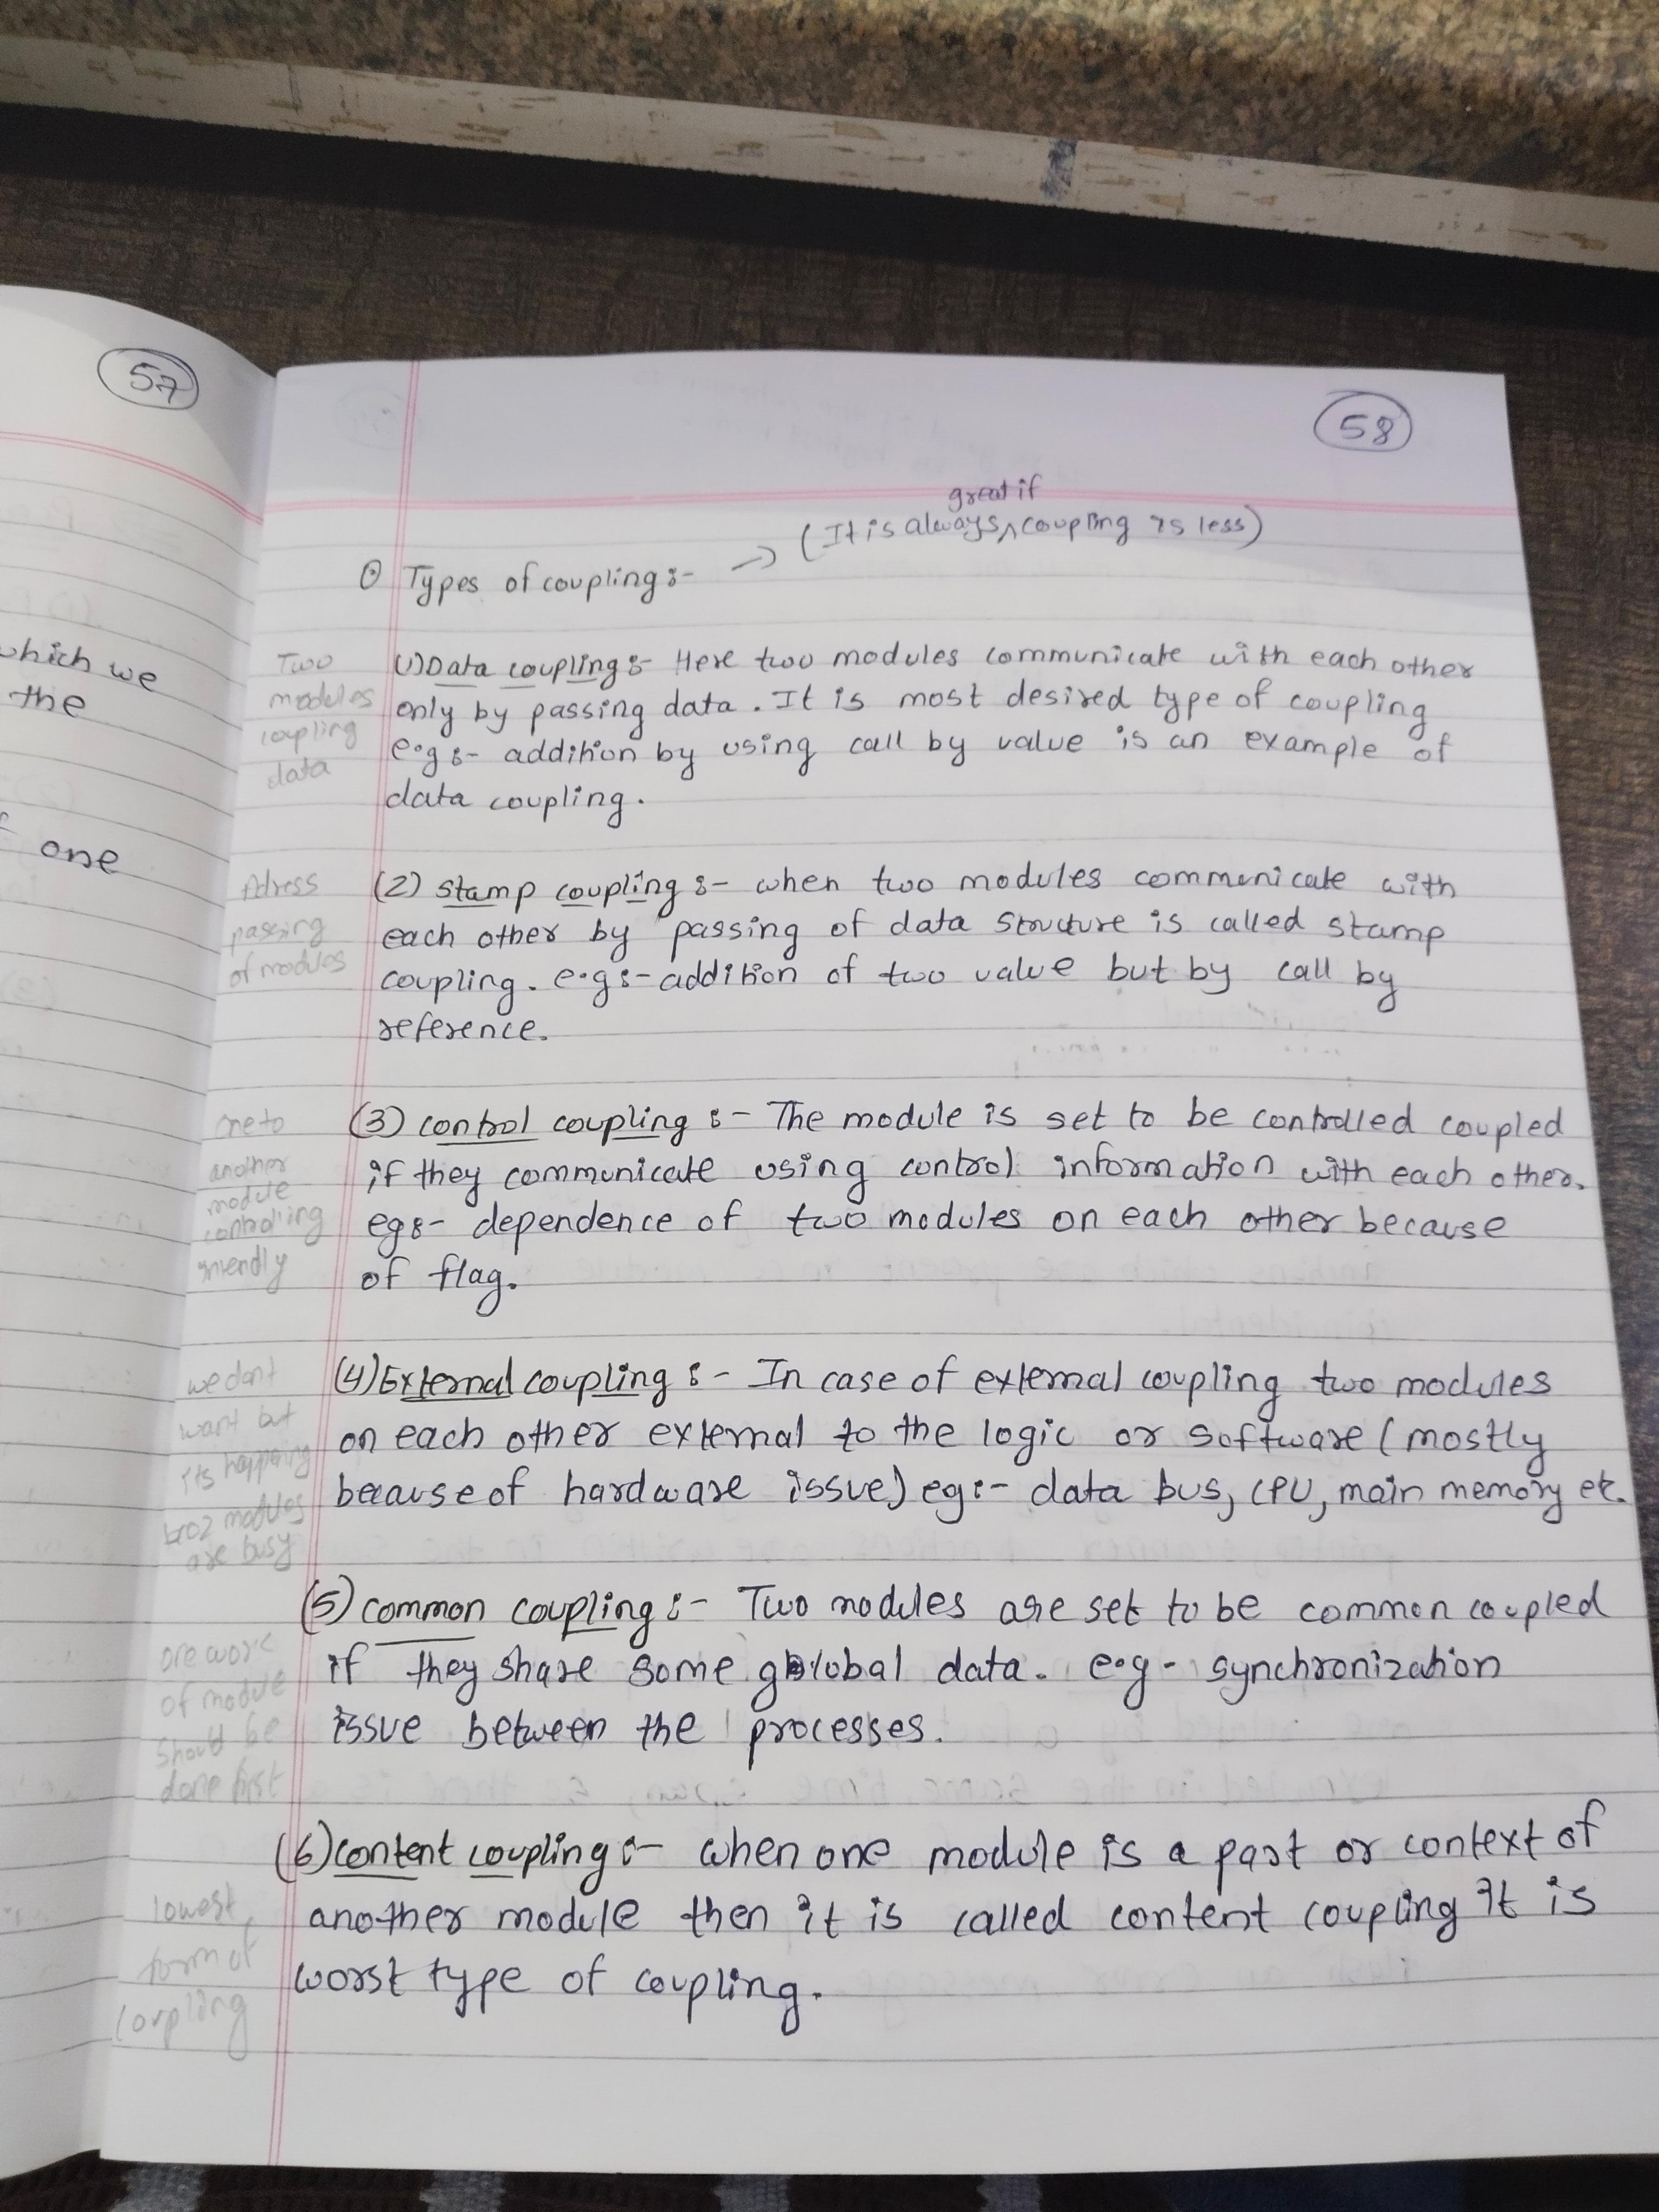 57
which we
the
one
58
great if
(It is always ^ coupling is less)
Types of coupling :- →
Two
modules
coupling
data
(1) Data coupling :- Here two modules communicate with each other
only by passing data. It is most desired type of coupling
e.g :- addition by using call by value is an example of
data coupling.
Adress
passing
of modules
(2) stamp coupling :- when two modules communicate with
each other by passing of data structure is called stamp
coupling. e.g :- addition of two value but by call by
reference.
one to
another
module
controlling
(3) control coupling :- The module is set to be controlled coupled
if they communicate using control information with each other.
eg :- dependence of two modules on each other because
of flag.
we dont
want but
its happening
modules
are busy
(4) External coupling :- In case of external coupling two modules
on each other external to the logic or software (mostly
because of hardware issue) eg :- data bus, CPU, main memory etc.
one work
of module
should be
done first
(5) common coupling :- Two modules are set to be common coupled
if they share some global data. e.g - synchronization
issue between the processes.
lowest
form of
coupling
(6) content coupling :- when one module is a part or context of
another module then it is called content coupling it is
worst type of coupling.